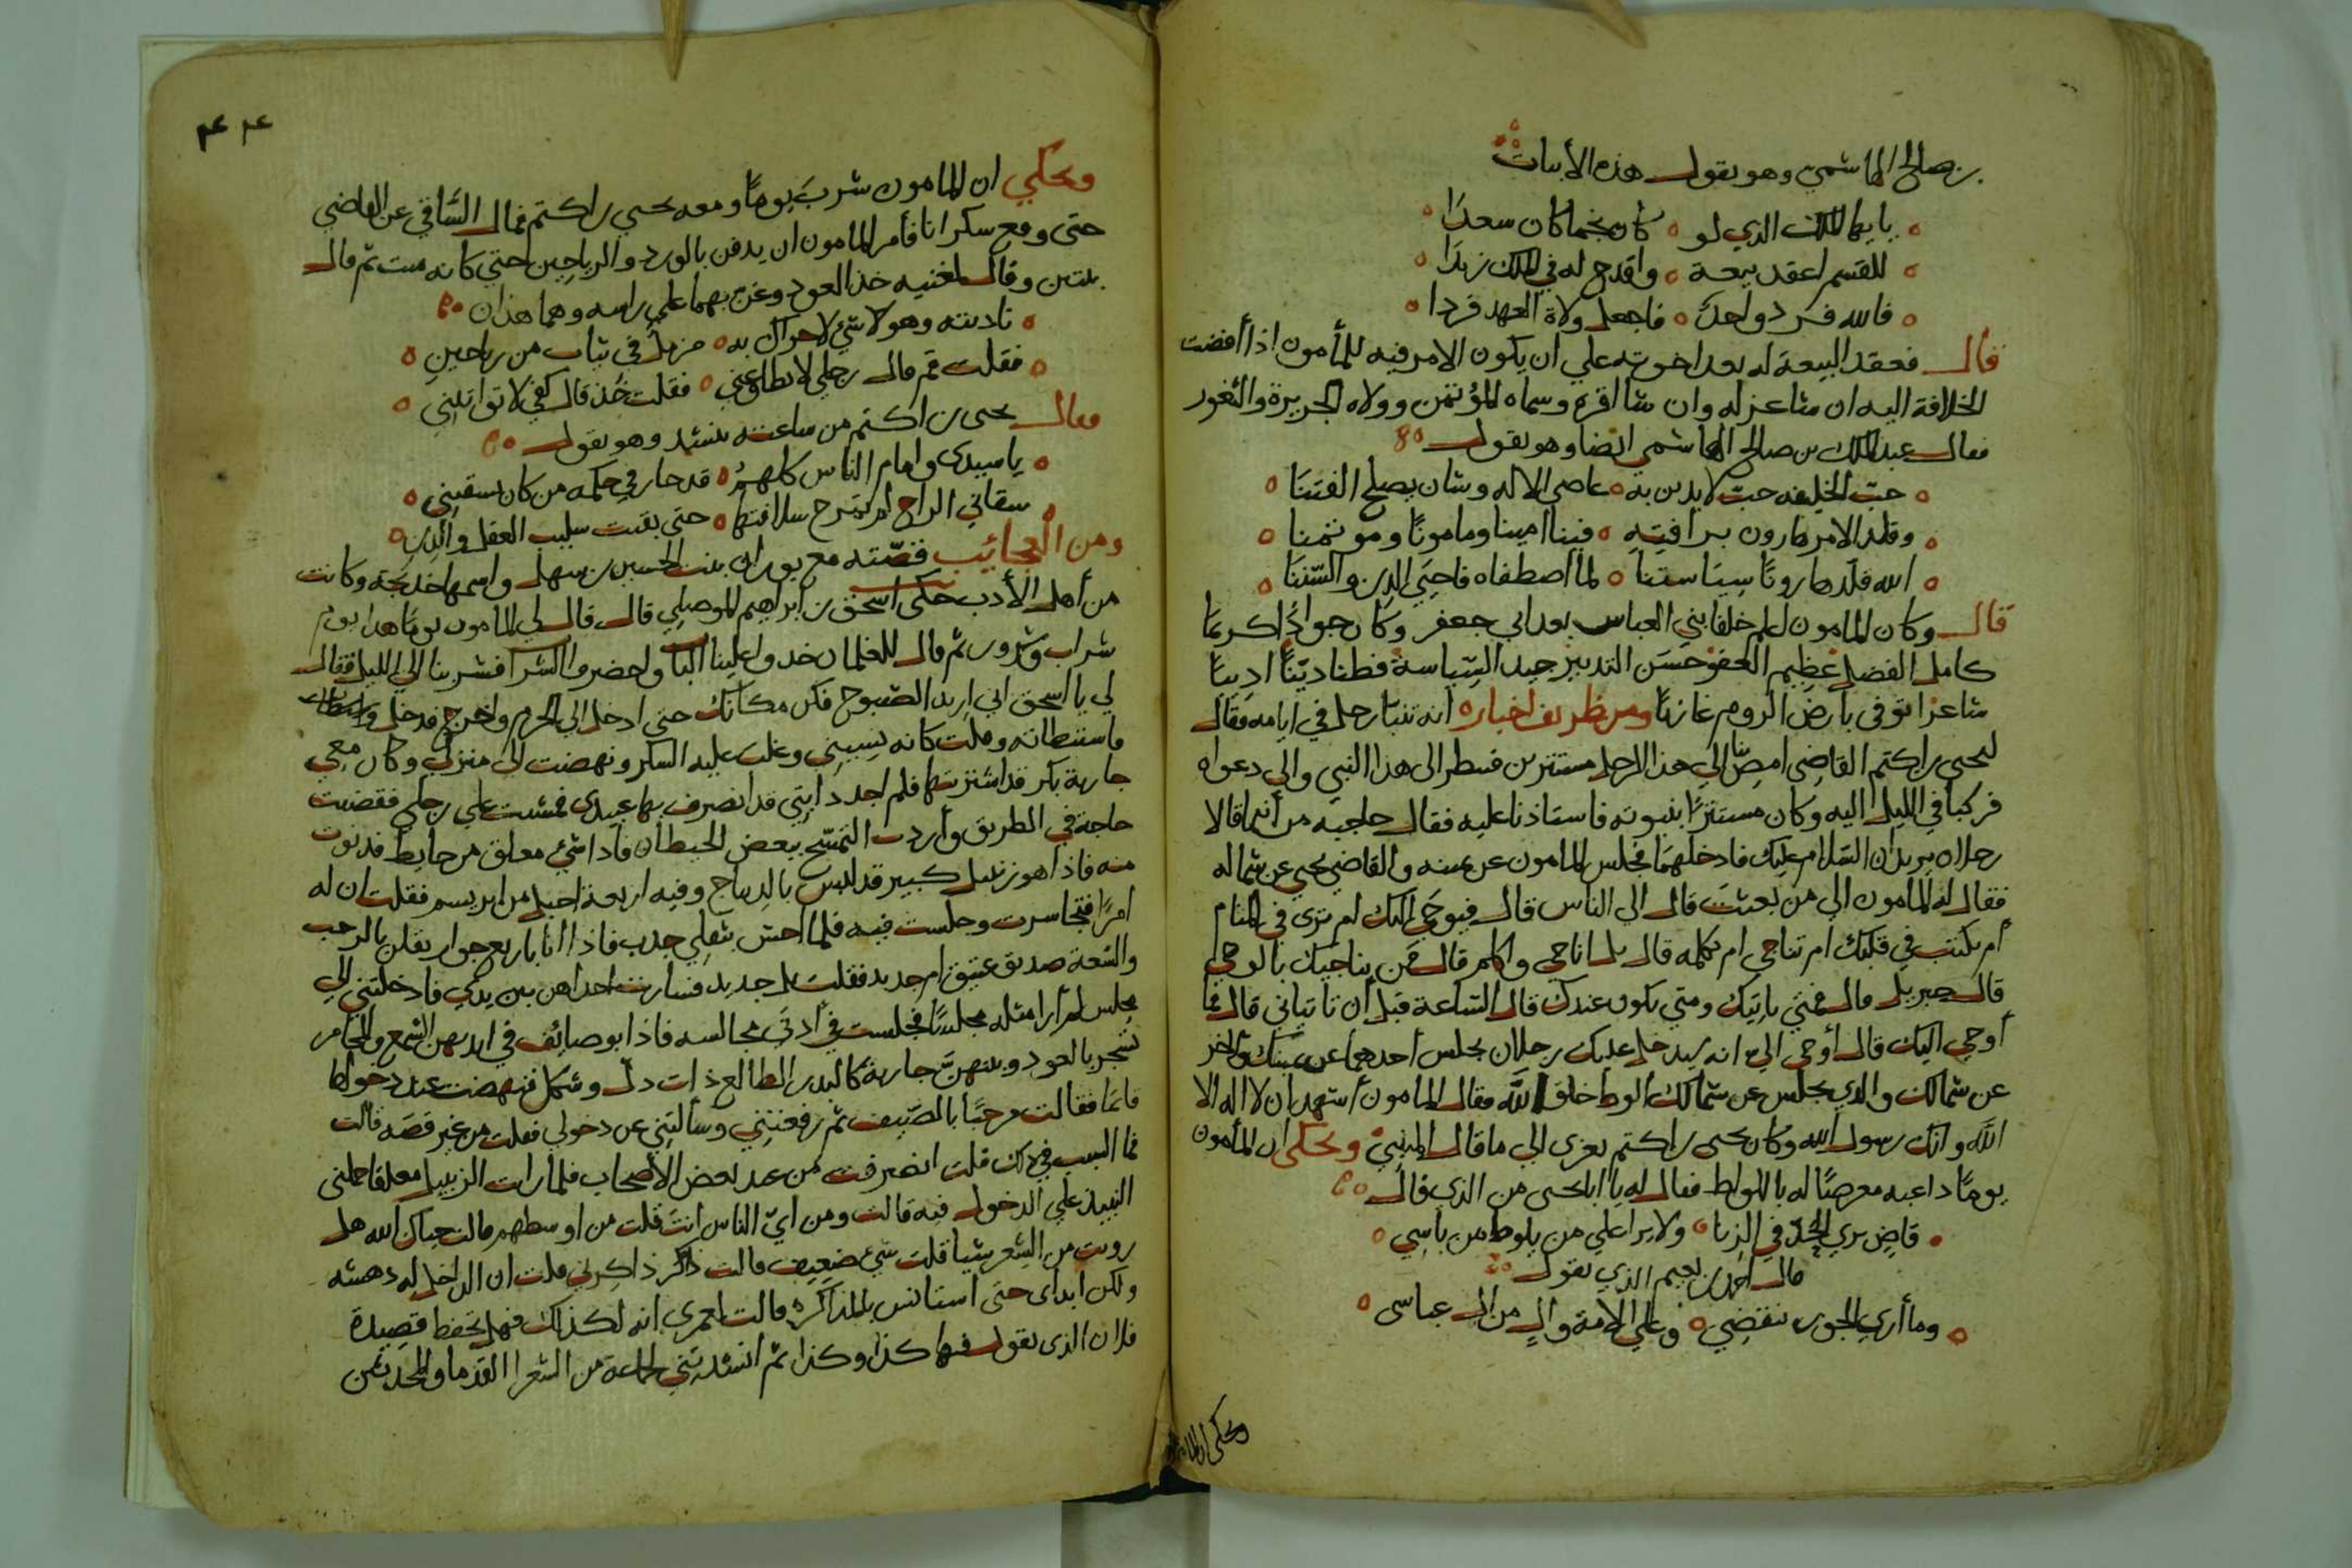 بن صالح الهاشمي وهو يقول هذه الأبيات
يا ايها الملك الذي لو كان نجما كان سعدا
للقسم اعقد بيعة واقدح له في الملك زندا
فالله فرد واحد فاجعل ولاة العهد فردا
قال فعقد البيعة له بعد اخوته علي ان يكون الامر فيه للمأمون اذا أفضت
الخلافة اليه ان شا عزله وان شا اقره وسماه المؤتمن وولاه الجزيرة والثغور
فقال عبد الملك بن صالح الهاشمي ايضا وهو يقول
حبّ الخليفه حبّ لا يدين به عاصي الاله وشان يصلح الفتنا
وقلد الامر هارون برافيته فينا امينا ومامونًا وموتمنا
الله قلّد هارونًا سياستنا لما اصطفاه فاحيَي الدين والسّننَا
قال وكان المامون اعلم خلفا بني العباس بعد ابي جعفر وكان جوادًا كريمًا
كامل الفضل عظيم العفو حسَن التدبير جيد السّياسة فطنا ديّنًا اديبًا
شاعرًا توفي بارض الروم غازيًا ومن ظريف اخباره انه تنبّا رجل في ايامه فقال
ليحيي بن اكتم القاضي امض بنا الي هذا الرجل مستترين فننظر الي هذا النبي والي دعواه
فركبا في الليل اليه وكان مستترًا بنبوته فاستاذنا عليه فقال حاجبه من أنتما قالا
رجلان يريدان السّلام عليك فادخلهمَا فجلس المامون عن يمينه والقاضي يحيي عن شماله
فقال له المأمون الي من بعثت قال الي الناس قال فيوحَي اليك ام ترى في المنام
أم يكتب في قلبك ام تناجي ام تكلمه قال بل اناجي واكلم قال فمَن يناجيك بالوحي
قال جبريل قال فمتي ياتيك ومتي يكون عندك قال السّاعة قبل أن تاتياني قال فما
أوحي اليك قال أوحي اليّ انه سيدخل عليك رجلان يجلس أحدهما عن يمينك والاخر
عن شمالك والذي يجلس عن شمالك الوط خلق الله فقال المامون أشهد ان لا اله الا
الله وانك رسول الله وكان يحيي بن اكتم يعزى الي ما قال المتنبي ويحكي ان المأمون
يومًا داعبه معرضًا له باللواط فقال له يا ابا يحيي من الذي قال
قاضٍ يري الحدّ في الزنا ولا يرا علي من يلوط من باسِي
قال احمد بن نعيم الذي يقول
وما أري الجور ينقضِي وعلي الامة والٍ من ال عباسي
ويحكي ان المامون
٤٤
ويحكي ان المامون شربَ يومًا ومعه يحيي بن اكتم فمال السّاقي عن القاضي
حتى وقع سكرانا فأمر المامون ان يدفن بالورد والرياحين حتي كانه ميت ثم قال
بيتين وقال لمغنيه خذ العود وغنّ بهما علي راسه وهما هذان
ناديته وهو لا شئ لا حراك به مزمل في ثياب من رياحين
فقلت قم قال رجلي لا تطاوعني فقلت خُذ قال كفي لا تواتيني
فقال يحيى بن اكتم من ساعته ينشد وهو يقول
يا سيدي وامام الناس كلهمُ قد جار في حكمه من كان يسقيني
سقاني الراح لم تمزج سلافتها حتي بقيت سليب العقل والدين
ومن العجائب قصّته مع بوران بنت الحسين بن سهل واسمها خديجة وكانت
من أهل الأدب حكى اسحق بن ابراهيم الموصلي قال قال لي المامون يومًا هذا يوم
شراب وسرور ثم قال للغلمان خدوا علينا الباب واحضروا الشراب فشربنا الي الليل فقال
لي يا اسحق اني اريد الصّبوح فكن مكانك حتي ادخل الي الحرم واخرج فدخل
فاستبطاته وقلت كانه نسيني وغلب عليه السكر ونهضت الي منزلي وكان معي
جارية بكر قد اشتريتها فلم اجد دابتي قد انصرف بها عبيدي فمشيت علي رجلي فقضيت
حاجة في الطريق وأردت التمسّح ببعض الحيطان فاذا شئ معلق من حايط فدنوت
منه فاذا هو زنبيل كبير قد البس بالديباج وفيه اربعة احبل من ابريسم فقلت ان له
امرًا فتجاسرت وجلست فيه فلما احسّ بثقلي جذب فاذا أنا باربع جوار يقلن بالرحب
والسّعة صديق عتيق ام جديد فقلت بل جديد فسارت احداهن بين يدي فادخلتني الي
مجلس لم أرا مثله مجلسًا فجلست في أدنَى مجالسه فاذا بوصائف في ايديهن الشمع والمجامر
تسجر بالعود وبينهنّ جارية كالبدر الطالع ذات دلّ وشكل فنهضت عند دخولها
قائمًا فقالت مرحبًا بالضّيف ثم رفعتني وسألتني عن دخولي فقلت من غير قصَه قالت
فما السبب في ذلك قلت انصرفت من عند بعض الأصحاب فلما رايت الزنبيل معلقا حملني
النبيذ علي الدخول فيه قالت ومن ايّ الناس انتَ قلت من اوسطهم قالت حياك الله هل
رويت من الشِعر شيا قلت شئ ضعِيف قالت ذاكر ذاكرني قلت ان الداخل له دهشه
ولكن ابداي حتى استانس بالمذاكره قالت لعمري انه لكذلك فهل تحفظ قصيدة
فلان الذي يقول فيها كذا وكذا ثم انشدتني لجماعة من الشعرا القدما والمحدثين